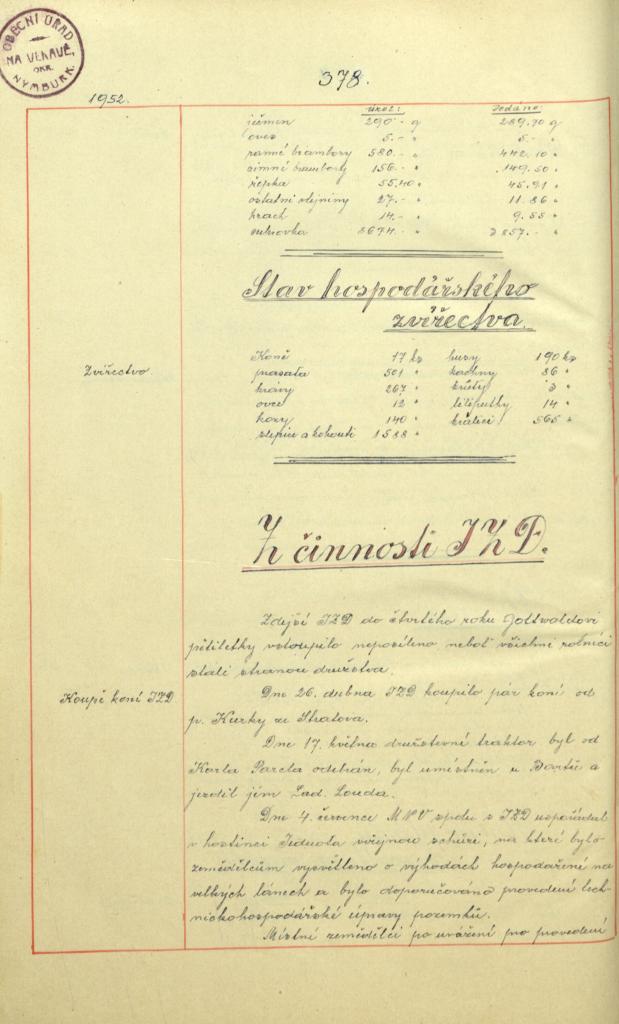 OBECNÍ ÚŘAD
NA VLKAVĚ,
OKR.
NYMBURK.
378.
1952.
úkol: dodáno:
ječmen 290.- q 289.70 q
oves 5.- " 5.- "
ranné brambory 580.- " 442.10 "
zimné brambory 156.- " 149.50 "
řepka 55.40 " 45.91 "
ostatní olejniny 27.- " 11.86 "
hrach 14.- " 9.55 "
cukrovka 3674.- " 3857.- "
Stav hospodářského
zvířectva.
Zvířectvo.
Koně 17 ks husy 190 ks
prasata 501 " kachny 86 "
krávy 267 " krůty 3 "
ovce 12 " liliputky 14 "
kozy 140 " králíci 565 "
slepice a kohouti 1588 "
Z činnosti JZD.
Zdejší JZD do čtvrtého roku Gottwaldovi
pětiletky vstoupilo neposíleno neboť všichni rolníci
stáli stranou družstva.
Koupě koní JZD
Dne 26. dubna JZD koupilo pár koní od
p. Kurky ze Stratova.
Dne 17. května družstevní traktor byl od
Karla odebrán, byl umístněn u Bartů a
jezdil jím Lad. Louda.
Dne 4. července MNV spolu s JZD uspořádal
v hostinci Jednota veřejnou schůzi, na které bylo
zemědělcům vysvětleno o výhodách hospodaření na
velkých lánech a bylo doporučováno provedení tech-
nickohospodářské úpravy pozemků.
Místní zemědělci po uvážení pro provedení